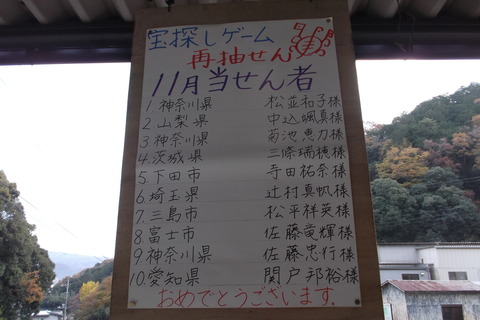 宝探しゲーム
再抽せん
11月当せん者
1 神奈川県 松並和子様
2. 山梨県 中込颯真様
3 神奈川県 菊池恵力様
4. 茨城県 三條瑞穂様
5. 下田市 寺田祐奈様
6. 埼玉県 辻村真帆様
7. 三島市 松平祥英様
8. 富士市 佐藤竜輝様
9. 神奈川県 佐藤忠行様
10. 愛知県 関戸邦裕様
おめでとうございます.